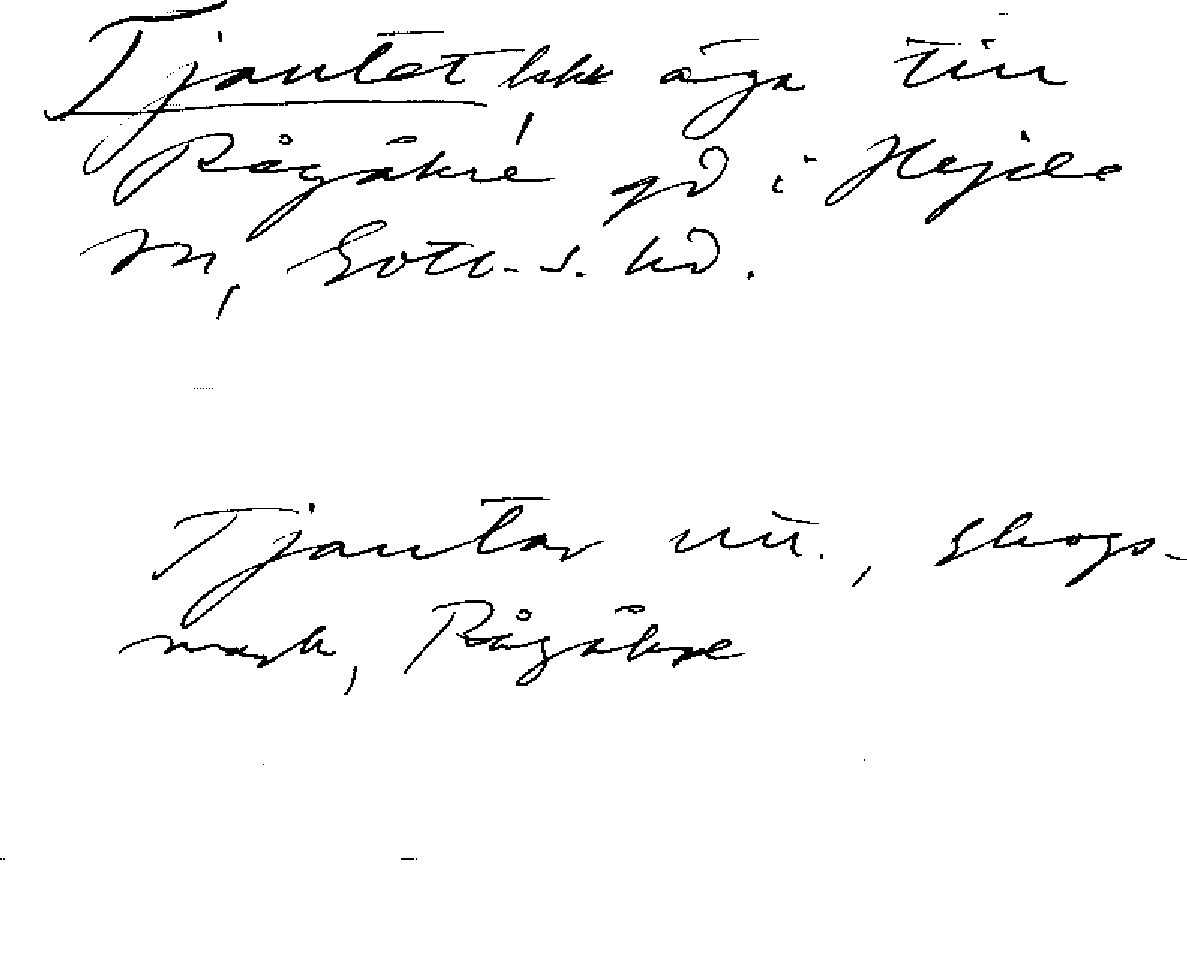 Tjautet, äga till
Rågåkre gd i Hejde
sn, Gotl. s. hd.
Tjautar nu., skogs-
mark, Rågåkre